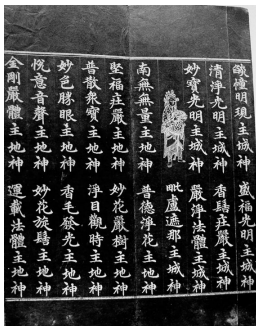 幢明現主城神　盛福光明主城神
清淨光明主城神　香髻庄嚴主城神
妙寶光明主城神　嚴淨法主城神
毗盧遮那主城神
南無無量主地神　普德淨花主地神
堅福庄嚴主地神　妙花嚴樹主地神
普散衆寶主地神　淨目觀時主地神
妙色勝眼主地神　香毛發光主地神
悅意音聲主地神　妙花旋髻主地神
金剛嚴體主地神　運載法體主地神